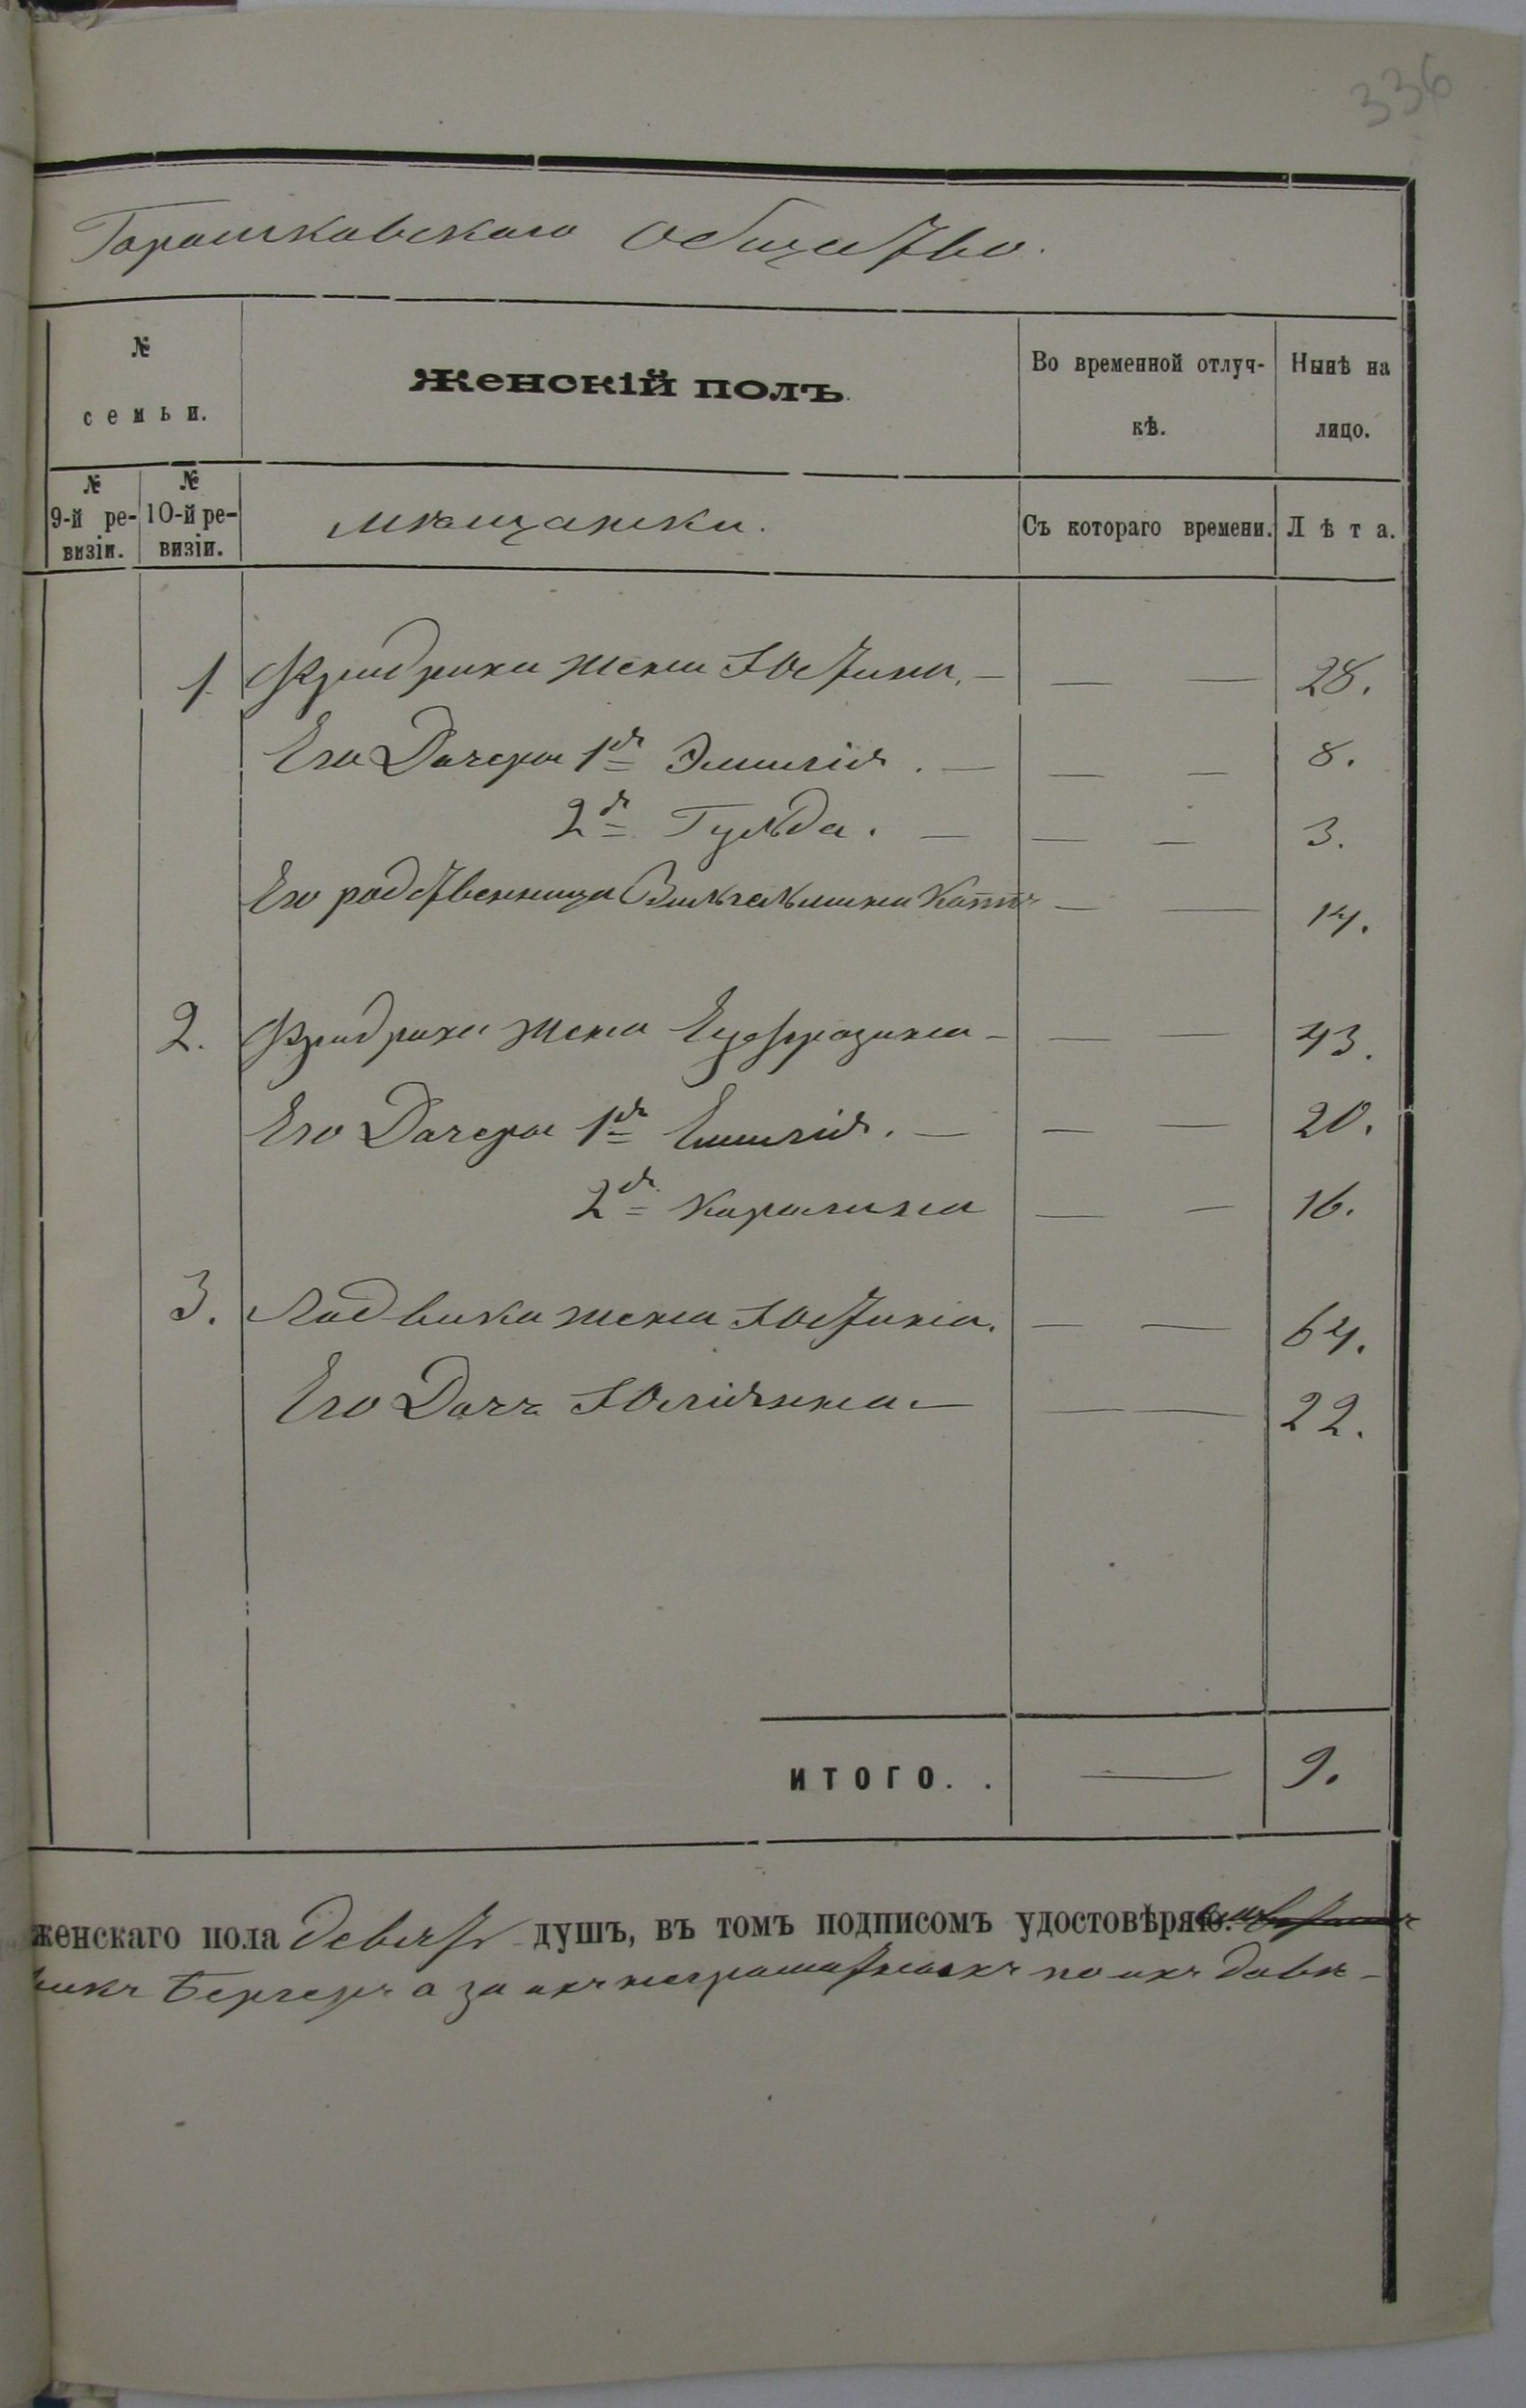 336
Горошковскаго Общество.
№
семьи.
Женскій полъ.
Во временной отлуч-
кѣ.
Нынѣ на
лицо.
№
9-й ре-
визіи.
№
10-й ре-
визіи.
мѣщанки.
Съ котораго времени.
Лѣта.
1. Фридриха жена Юстина. — — — 28.
Его Дочери 1я Эмилія. — — — 8.
2я Гульда. — — — 3.
Его родственница Вильгельмина Каттъ — — 14.
2. Фридриха жена Еуфрозина — — — 43.
Его Дочери 1я Емилія. — — — 20.
2я Каролина — — 16.
3. Людвика жена Юстина. — — 64.
Его Дочь Юліянна — — — 22.
ИТОГО. . — 9.
женскаго пола девять душъ, въ томъ подписомъ удостовѣряю.
Бергеръ а за ихъ неграмотностъ по ихъ довѣ-